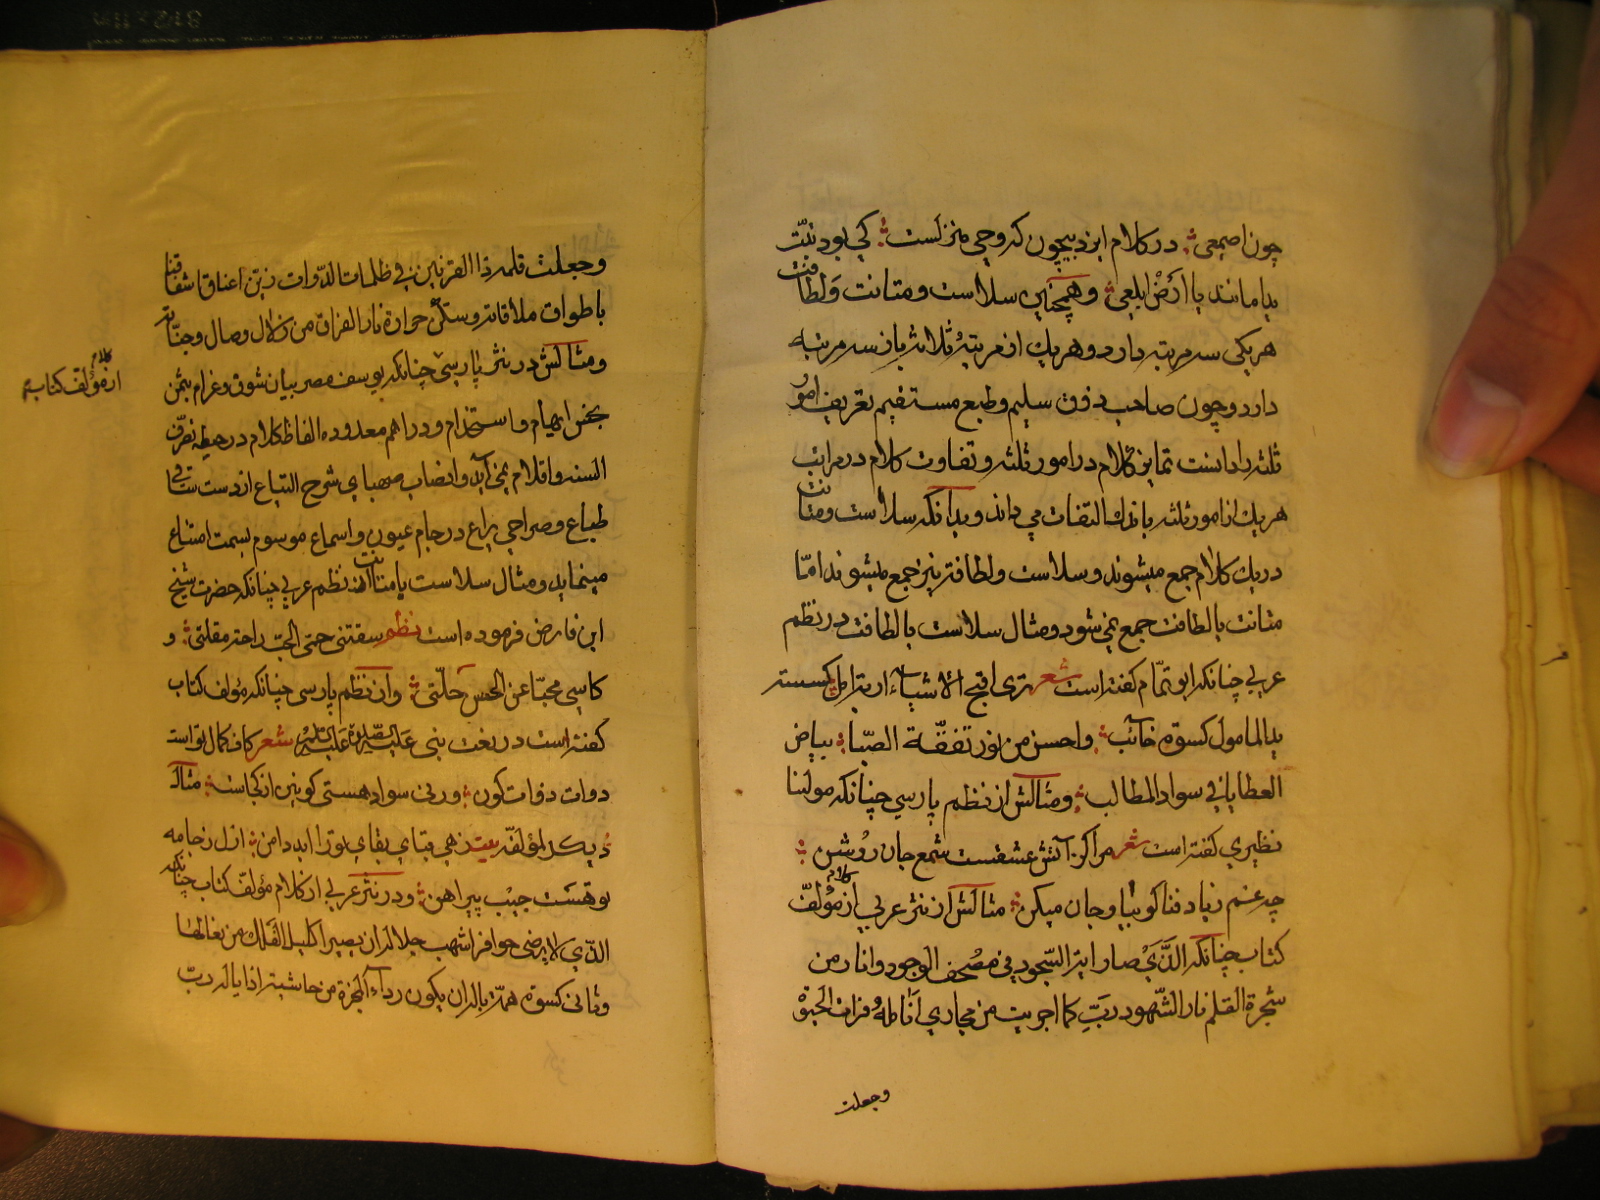 چون اصمعی در کلام ایزد بیچون که وحی منزلست کی بود تبّت
یدا مانند یا ارض ابلعی وهمچنین سلاست ومتانت ولطافت
هریکی سه مرتبه دارد وهریك از مرتبهٔ ثلاثه باز سه مرتبه
دارد وچون صاحب ذوق سلیم وطبع مستقیم تعریف امور
ثلثه را دانست تمایز کلام در امور ثلثه وتفاوت کلام در مراتب
هریك از امور ثلثه باندك التفات می داند وبدانکه سلاست ومتانت
در یك کلام جمع میشوند وسلاست ولطافت نیز جمع میشوند امّا
متانت بالطافت جمع نمی شود ومثال سلاست بالطافت در نظم
عربی چنانکه ابو تمّام کفته است شعر تری اقبح الاشیاء اوبة امل کسته
ید المامول کسوة خائب واحسن من نور تفتّحه الصّبا بیاض
العطایا فی سواد المطالب ومثالش از نظم پارسی چنانکه مولنا
نظیری کفته است شعر مرا که ز آتش عشقست شمع جان روشن
چه غم ز باد فنا کو بیا وجان میکن مثالش از نثر عربی از کلام مؤلف
کتاب چنانکه الذی صار ایة السّجود فی مصحف الوجود وانار من
شجرة القلم نار الشّهود ربّ کما اجریت من مجاری انامله فرات الحیوة
وجعلت
وجعلت قلمه ذا القرنین فی ظلمات الدّوات زیّن اعناق اشواقنا
باطواق ملاقاته وسکّن حرارة نار الفراق من زلال وصال وجنّاته
ومثالش در نثر پارسی چنانکه یوسف مصر بیان شوق وغرام بثمن
بخس ایهام واستخدام ودراهم معدوده الفاظ کلام در حیطه تصرّف
السنه واقلام نمی آید وانصاب صهبای شرح التیاع از دست ساقی
طباع وصراحی یراع در جام عیون واسماع موسوم بسمت امتناع
مینماید ومثال سلاست بامتانت از نظم عربی چنانکه حضرت شیخ
ابن فارض فرموده است نظم سقتنی حمیّ الحبّ راحة مقلتی و
کاسی محیّا من عن الحسن جلّتی واز نظم پارسی چنانکه مؤلف کتاب
کفته است در نعت نبی علیه الصلوة علیه السلام شعر کاف کمال تو است
دوات دفات کون ورنی سواد هستی کونین از کجاست مثال
دیکر لمؤلفه بیت زهی قبای بقای تو را ابد دامن ازل ز جامه
تو هست جیب پیراهن ودر نثر عربی از کلام مؤلف کتاب چنانکه
الذی لا یرضی حوافر اشهب جلاله ان یصیر اکلیل الفلك من نعالها
وثانی کسوة همّته بان یکون رداء المجرّة من حاشیة اذیاله رب
از کلام مؤلف کتابه